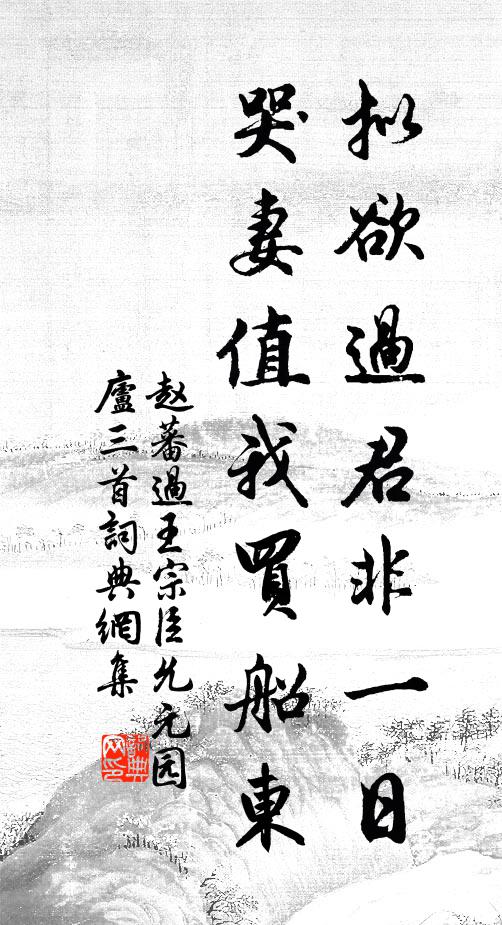 拟欲過君非一日
哭妻值我買船東
赵蕃過王宗臣允元园
廬三首詞典網集
詞典网印